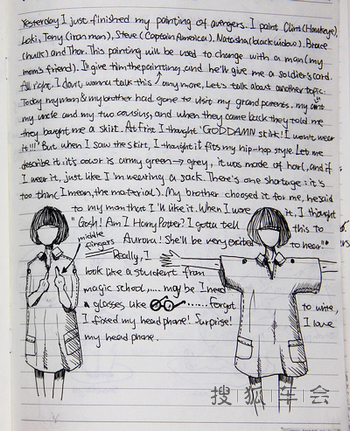 Yesterday I just finished my painting of avengers. I paint Clint(Hawkeye),
Loki, Tony(Iron man), Steve(Captain America), Natasha(black widow), Bruce
(hulk) and Thor. This painting will be used to change with a man(my
mom's friend). I'll give him the painting and he'll give me a soldier's cord.
All right, I don't wanna talk this any more, Let's talk about another topic:
Today my mom & my brother had gone to visit my grand parents. my aunt
my uncle and my two cousins, and when they came back they told me
they bought me a skirt. At first I thought "GODDAMN skirt! I won't wear
it!!!" But when I saw the skirt, I thought it fits my hip-hop style. Let me
describe it: it's colour is army green → grey, it was made of hard, and if
I wear it, just like I'm wearing a sack. There's one shortage: it's
too thin(I mean, the material). My brother chose it for me, he said
to my mom that I'll like it. When I wore it, I thought
"Gosh! Am I Harry Potter? I gotta tell this to
middle
fingers
Aurora! She'll be very excited to hear"
Really, I
look like a student from
magic school,.... may be I need
a glasses like ...... Forgot to write,
I fixed my head phone! Surprise! I love
my head phone.
搜狐社会